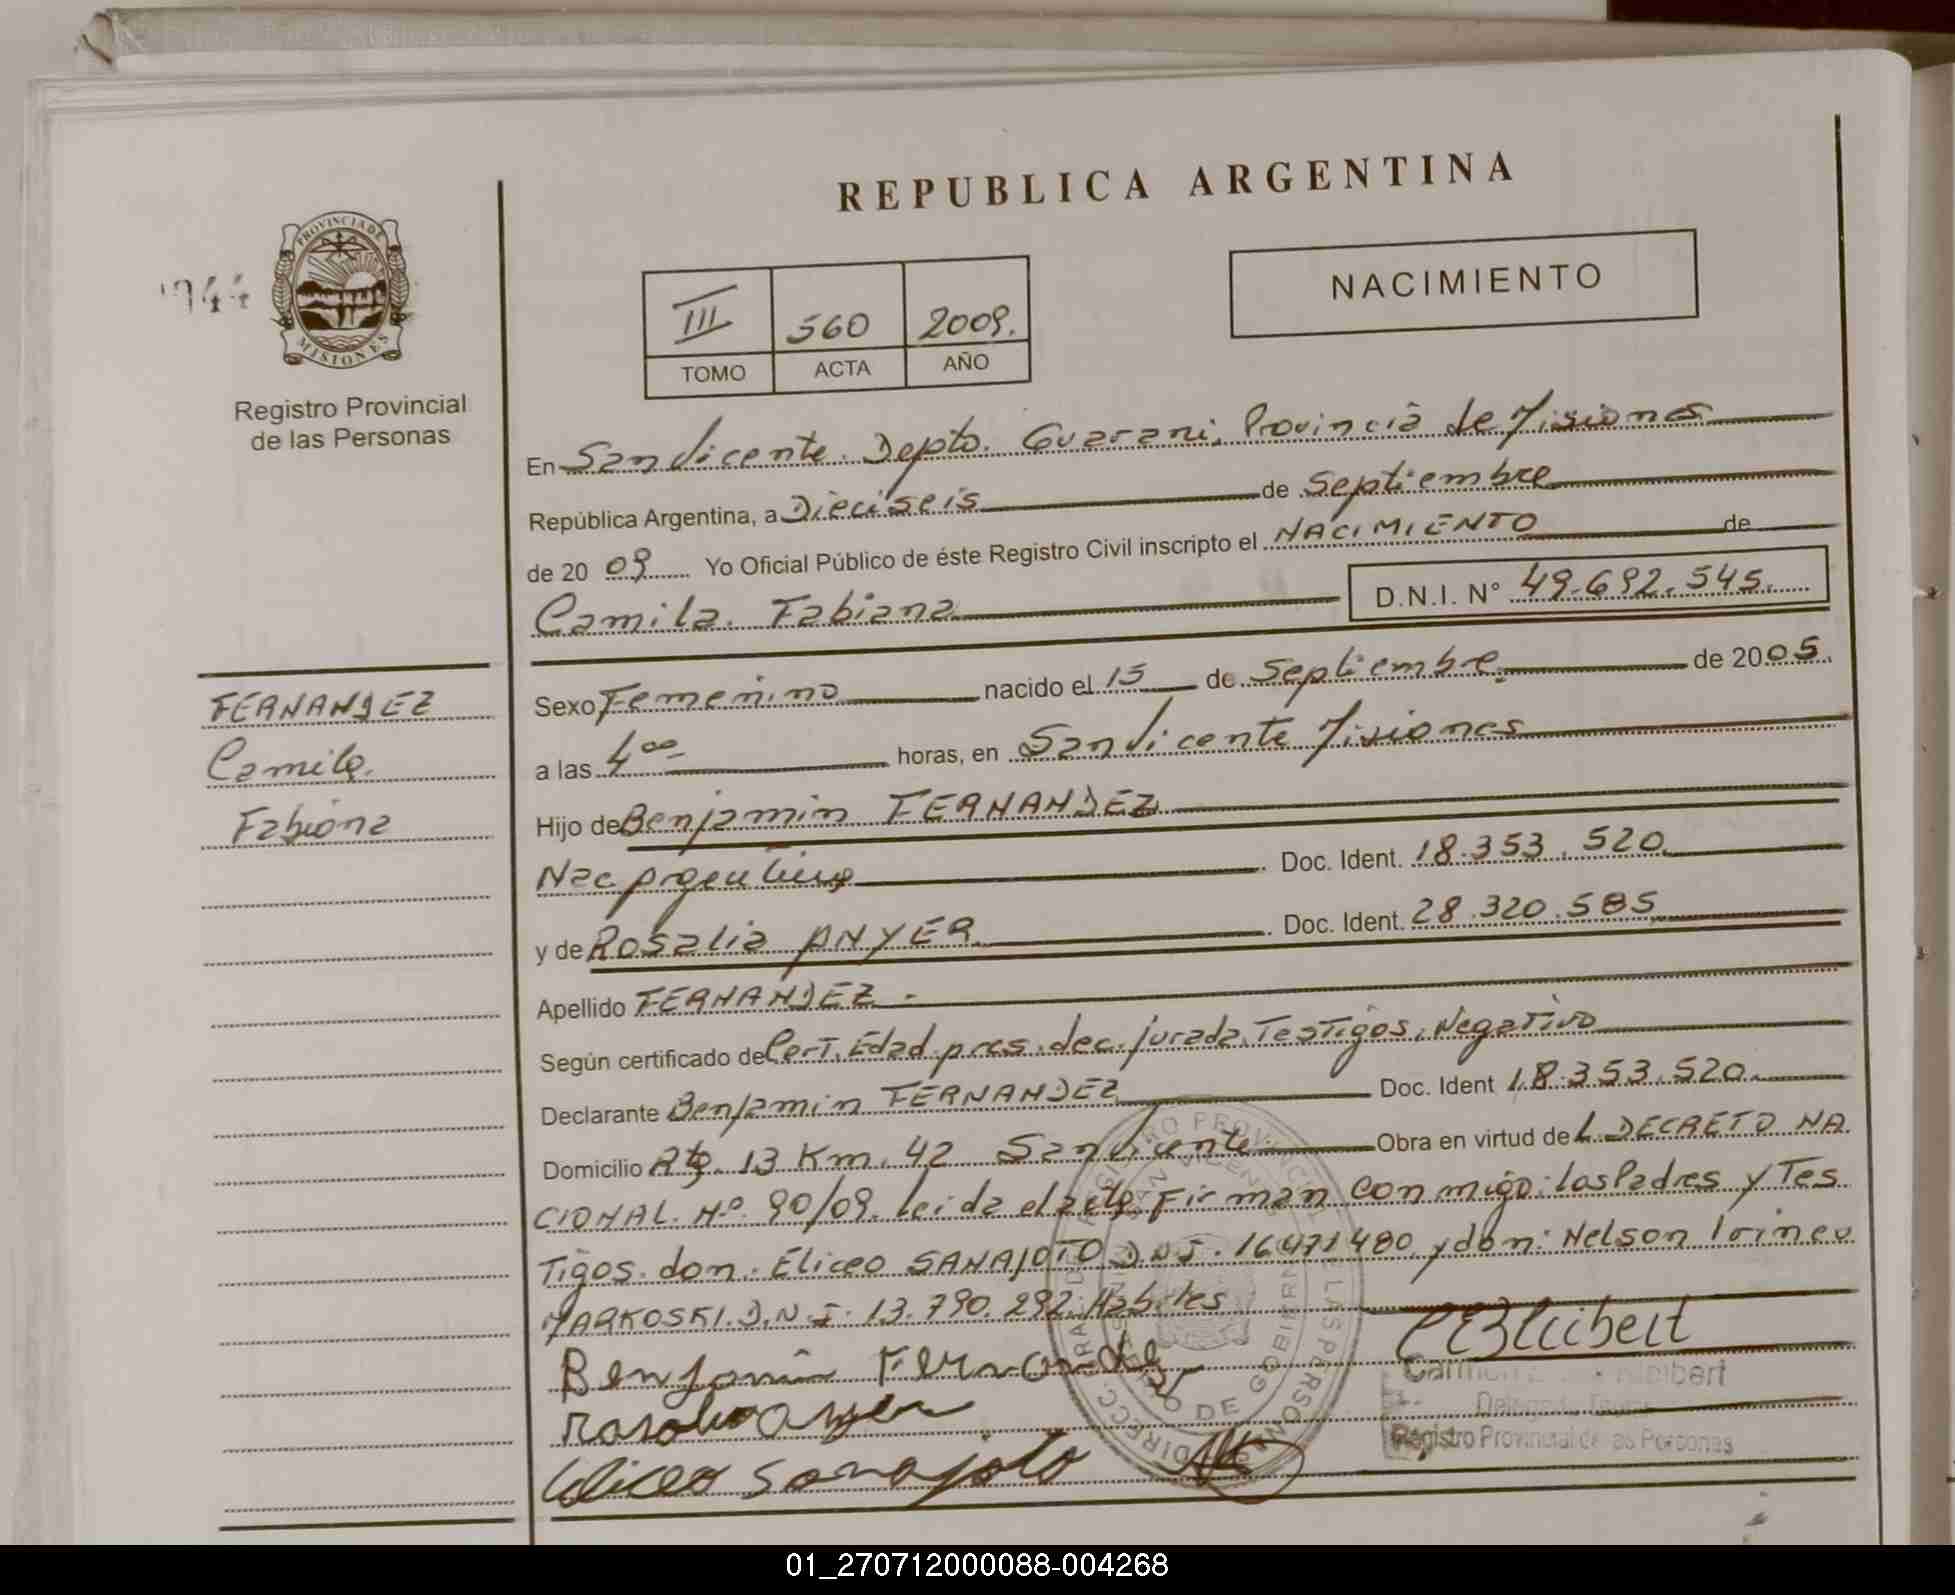 REPUBLICA ARGENTINA
PROVINCIA DE
MISIONES
Registro Provincial
de las Personas
III 560 2009.
TOMO ACTA AÑO
NACIMIENTO
En San Vicente. Depto. Guarani, Provincia de Misiones
República Argentina, a Dieciseis de Septiembre
de 2009 Yo Oficial Público de éste Registro Civil inscripto el NACIMIENTO de
Camila. Fabiana D.N.I. N° 49.692.545.
FERNANDEZ
Camila
Fabiana
Sexo Femenino nacido el 15 de Septiembre de 2005.
a las 4 00 horas, en San Vicente Misiones
Hijo de Benjamin FERNANDEZ
Nac Argentino Doc. Ident. 18.353.520
y de Rosalia ANYER Doc. Ident. 28.320.585
Apellido FERNANDEZ.-
Según certificado de Cert. Edad. pres. dec. jurada. Testigos. Negativo
Declarante Benjamin FERNANDEZ Doc. Ident 18.353.520.
Domicilio Rta. 13 Km. 42 San Vicente Obra en virtud del DECRETO NA
CIONAL. Nº. 90/09. leida el acta, Firman conmigo: los Padres y Tes
Tigos. don. Eliceo SANAJOTO D.N.I. 16471480 y don: Nelson Irineo
MARKOSKI. D.N.I. 13.790.292. Habiles
Benjamin Fernandez
rosalia anyer
Eliceo Sanajoto
Registro Provincial de las Personas
01_270712000088-004268